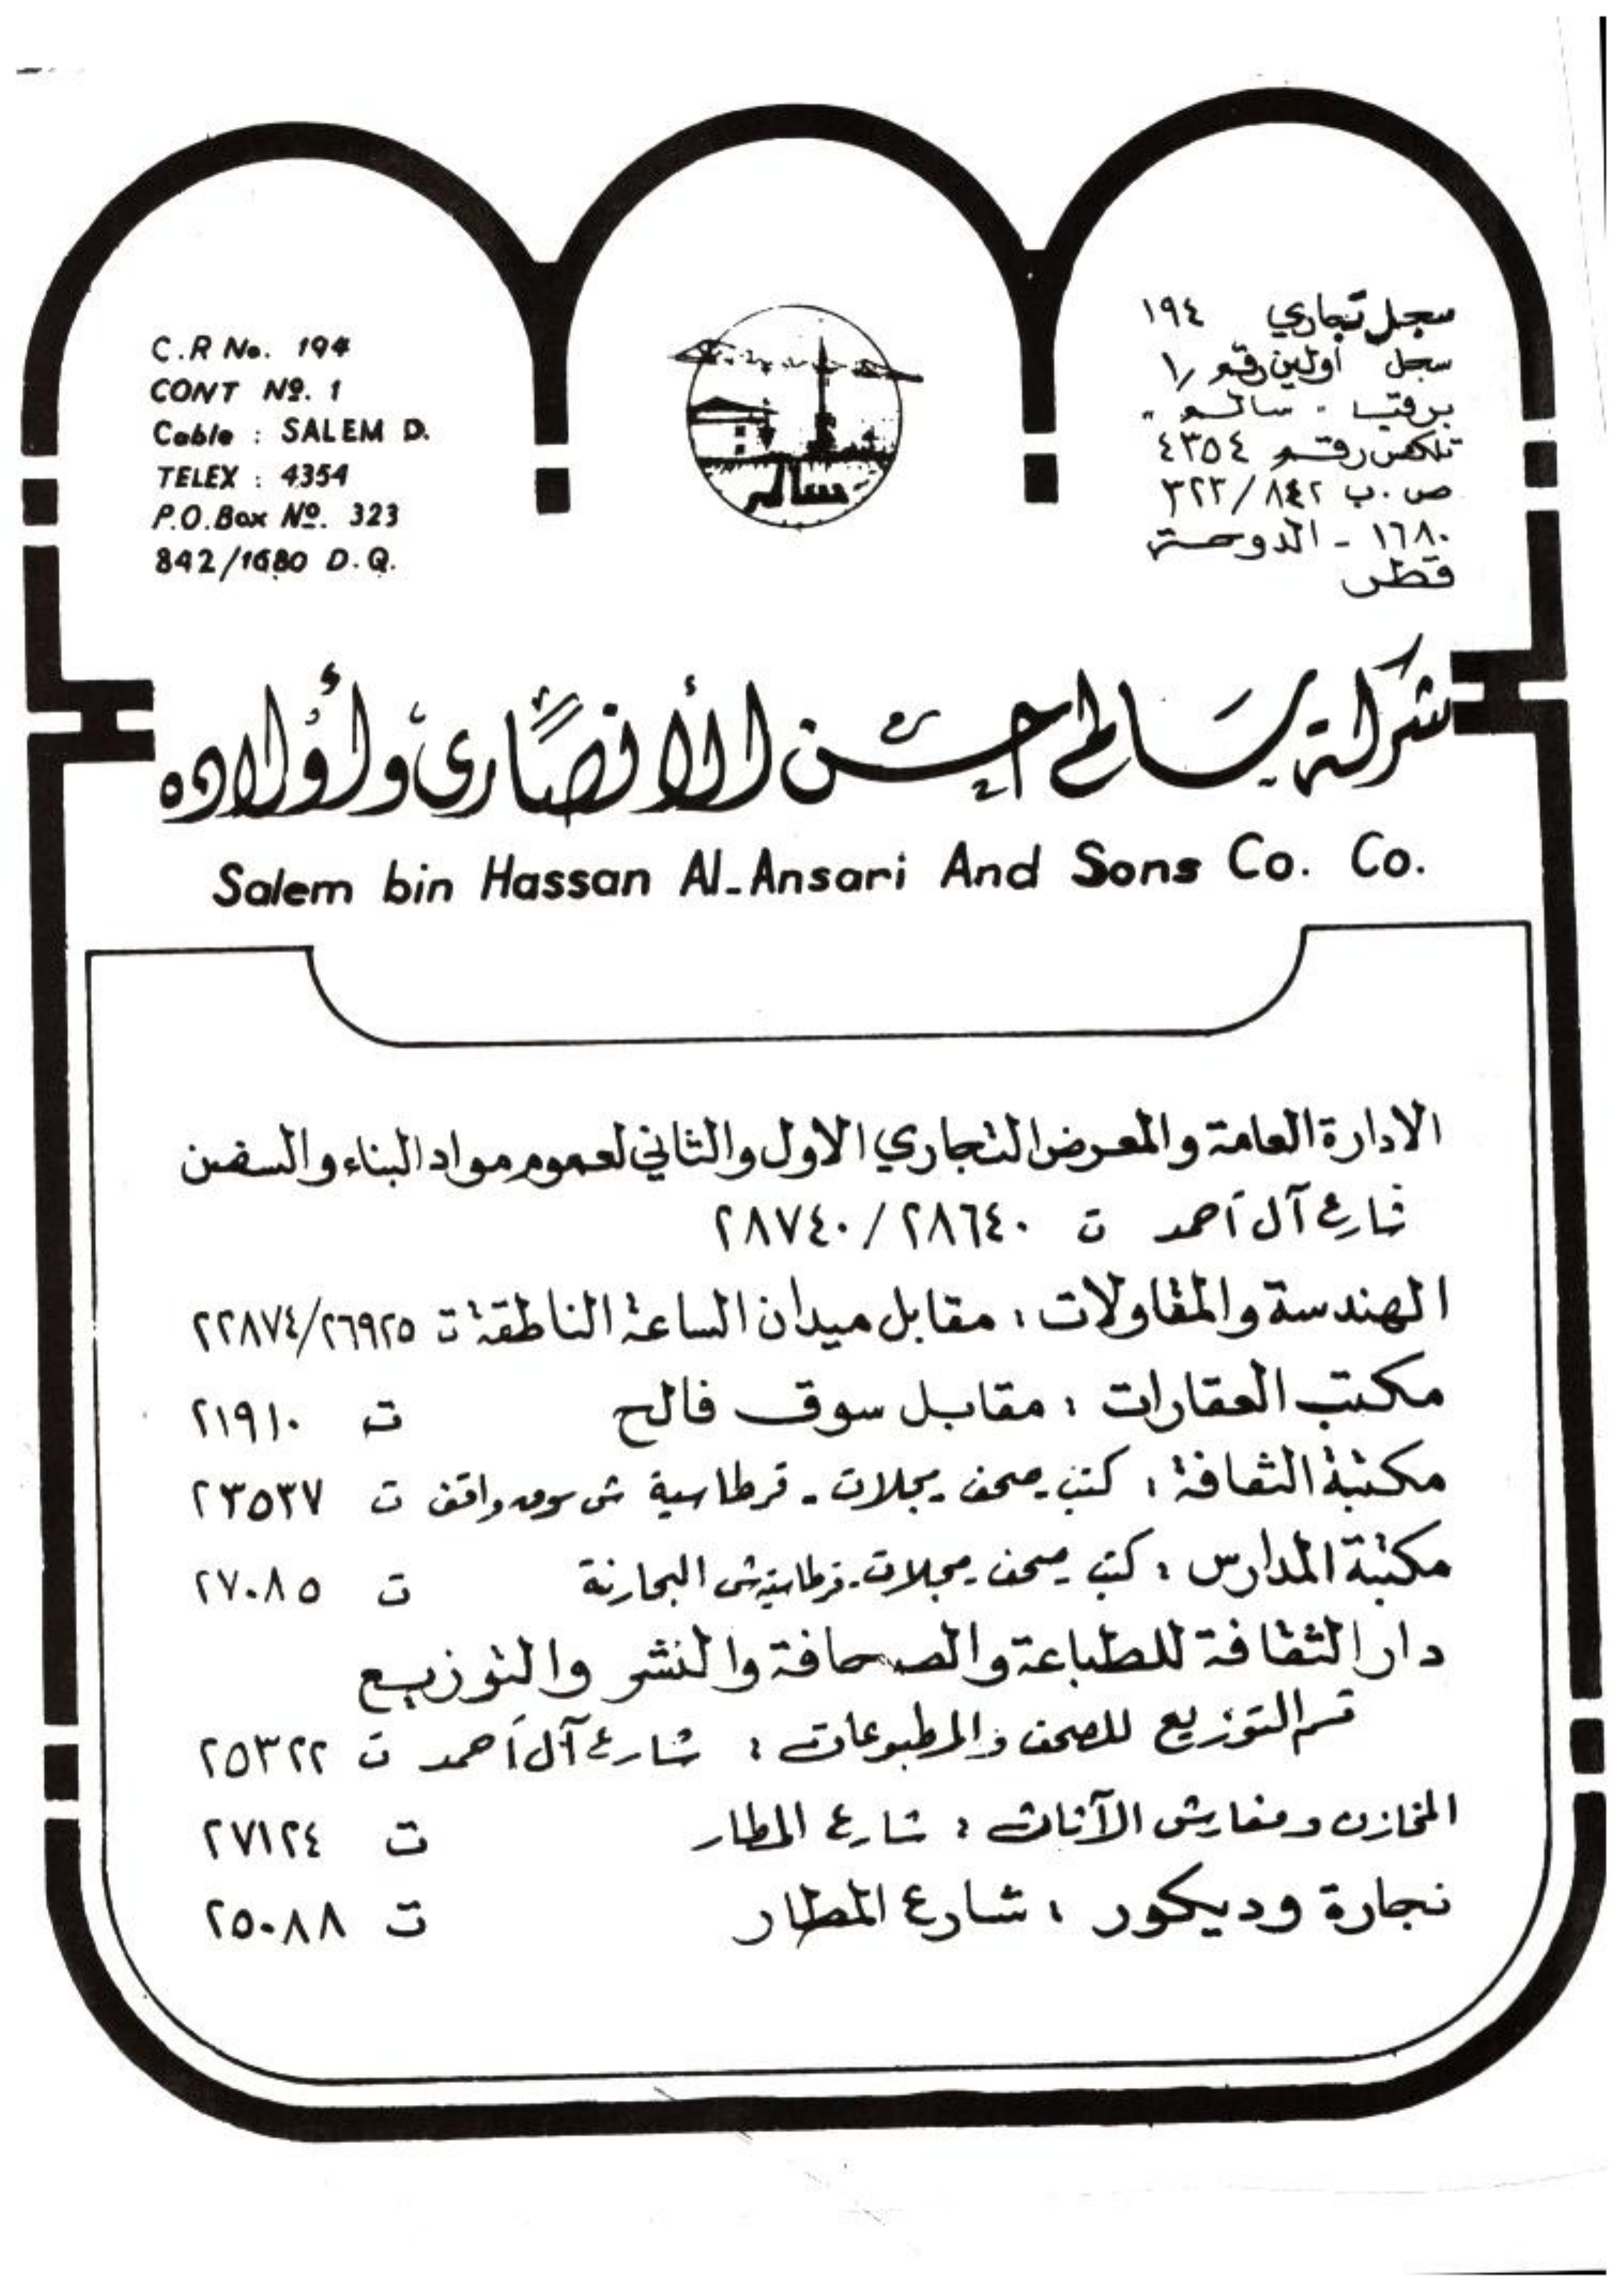 C.R No. 194
CONT Nº. 1
Cable : SALEM D.
TELEX : 4354
P.O.Box Nº. 323
842/1680 D.Q.
سالم
سجل تجاري ١٩٤
سجل أولين رقم ١/
برقيا - سالم "
تلكس رقم ٤٣٥٤
ص.ب ٣٢٣/٨٤٢
١٦٨٠ - الدوحة
قطر
شركة سالم حسن الأنصاري وأولاده
Salem bin Hassan Al-Ansari And Sons Co. Co.
الادارة العامة والمعرض التجاري الاول والثاني لعموم مواد البناء والسفن
شارع آل أحمد ت ٢٨٧٤٠/٢٨٦٤٠
الهندسة والمقاولات : مقابل ميدان الساعة الناطقة ت ٢٢٨٧٤/٢٦٩٢٥
مكتب العقارات : مقابل سوق فالح ت ٢١٩١٠
مكتبة الثقافة : كتب - صحف - مجلات - قرطاسية ش سوق واقف ت ٢٣٥٣٧
مكتبة المدارس : كتب - صحف - مجلات - قرطاسية ش البحارنة ت ٢٧٠٨٥
دار الثقافة للطباعة والصحافة والنشر والتوزيع
قسم التوزيع للصحف والمطبوعات : شارع آل أحمد ت ٢٥٣٢٢
المخازن ومفارش الآثاث : شارع المطار ت ٢٧١٢٤
نجارة وديكور : شارع المطار ت ٢٥٠٨٨